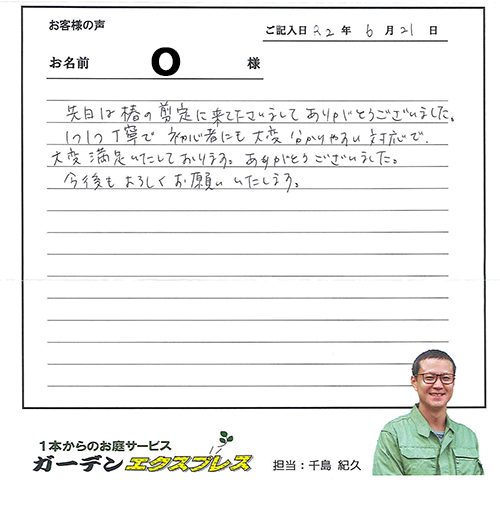 お客様の声
ご記入日 22 年 6 月 21 日
お名前 O 様
先日は椿の剪定に来て下さいまして ありがとうございました。
1つ1つ丁寧で 初心者にも大変分かりやすい対応で、
大変満足いたしております。ありがとうございました。
今後もよろしくお願いいたします。
1本からのお庭サービス
ガーデンエクスプレス
担当：千島 紀久